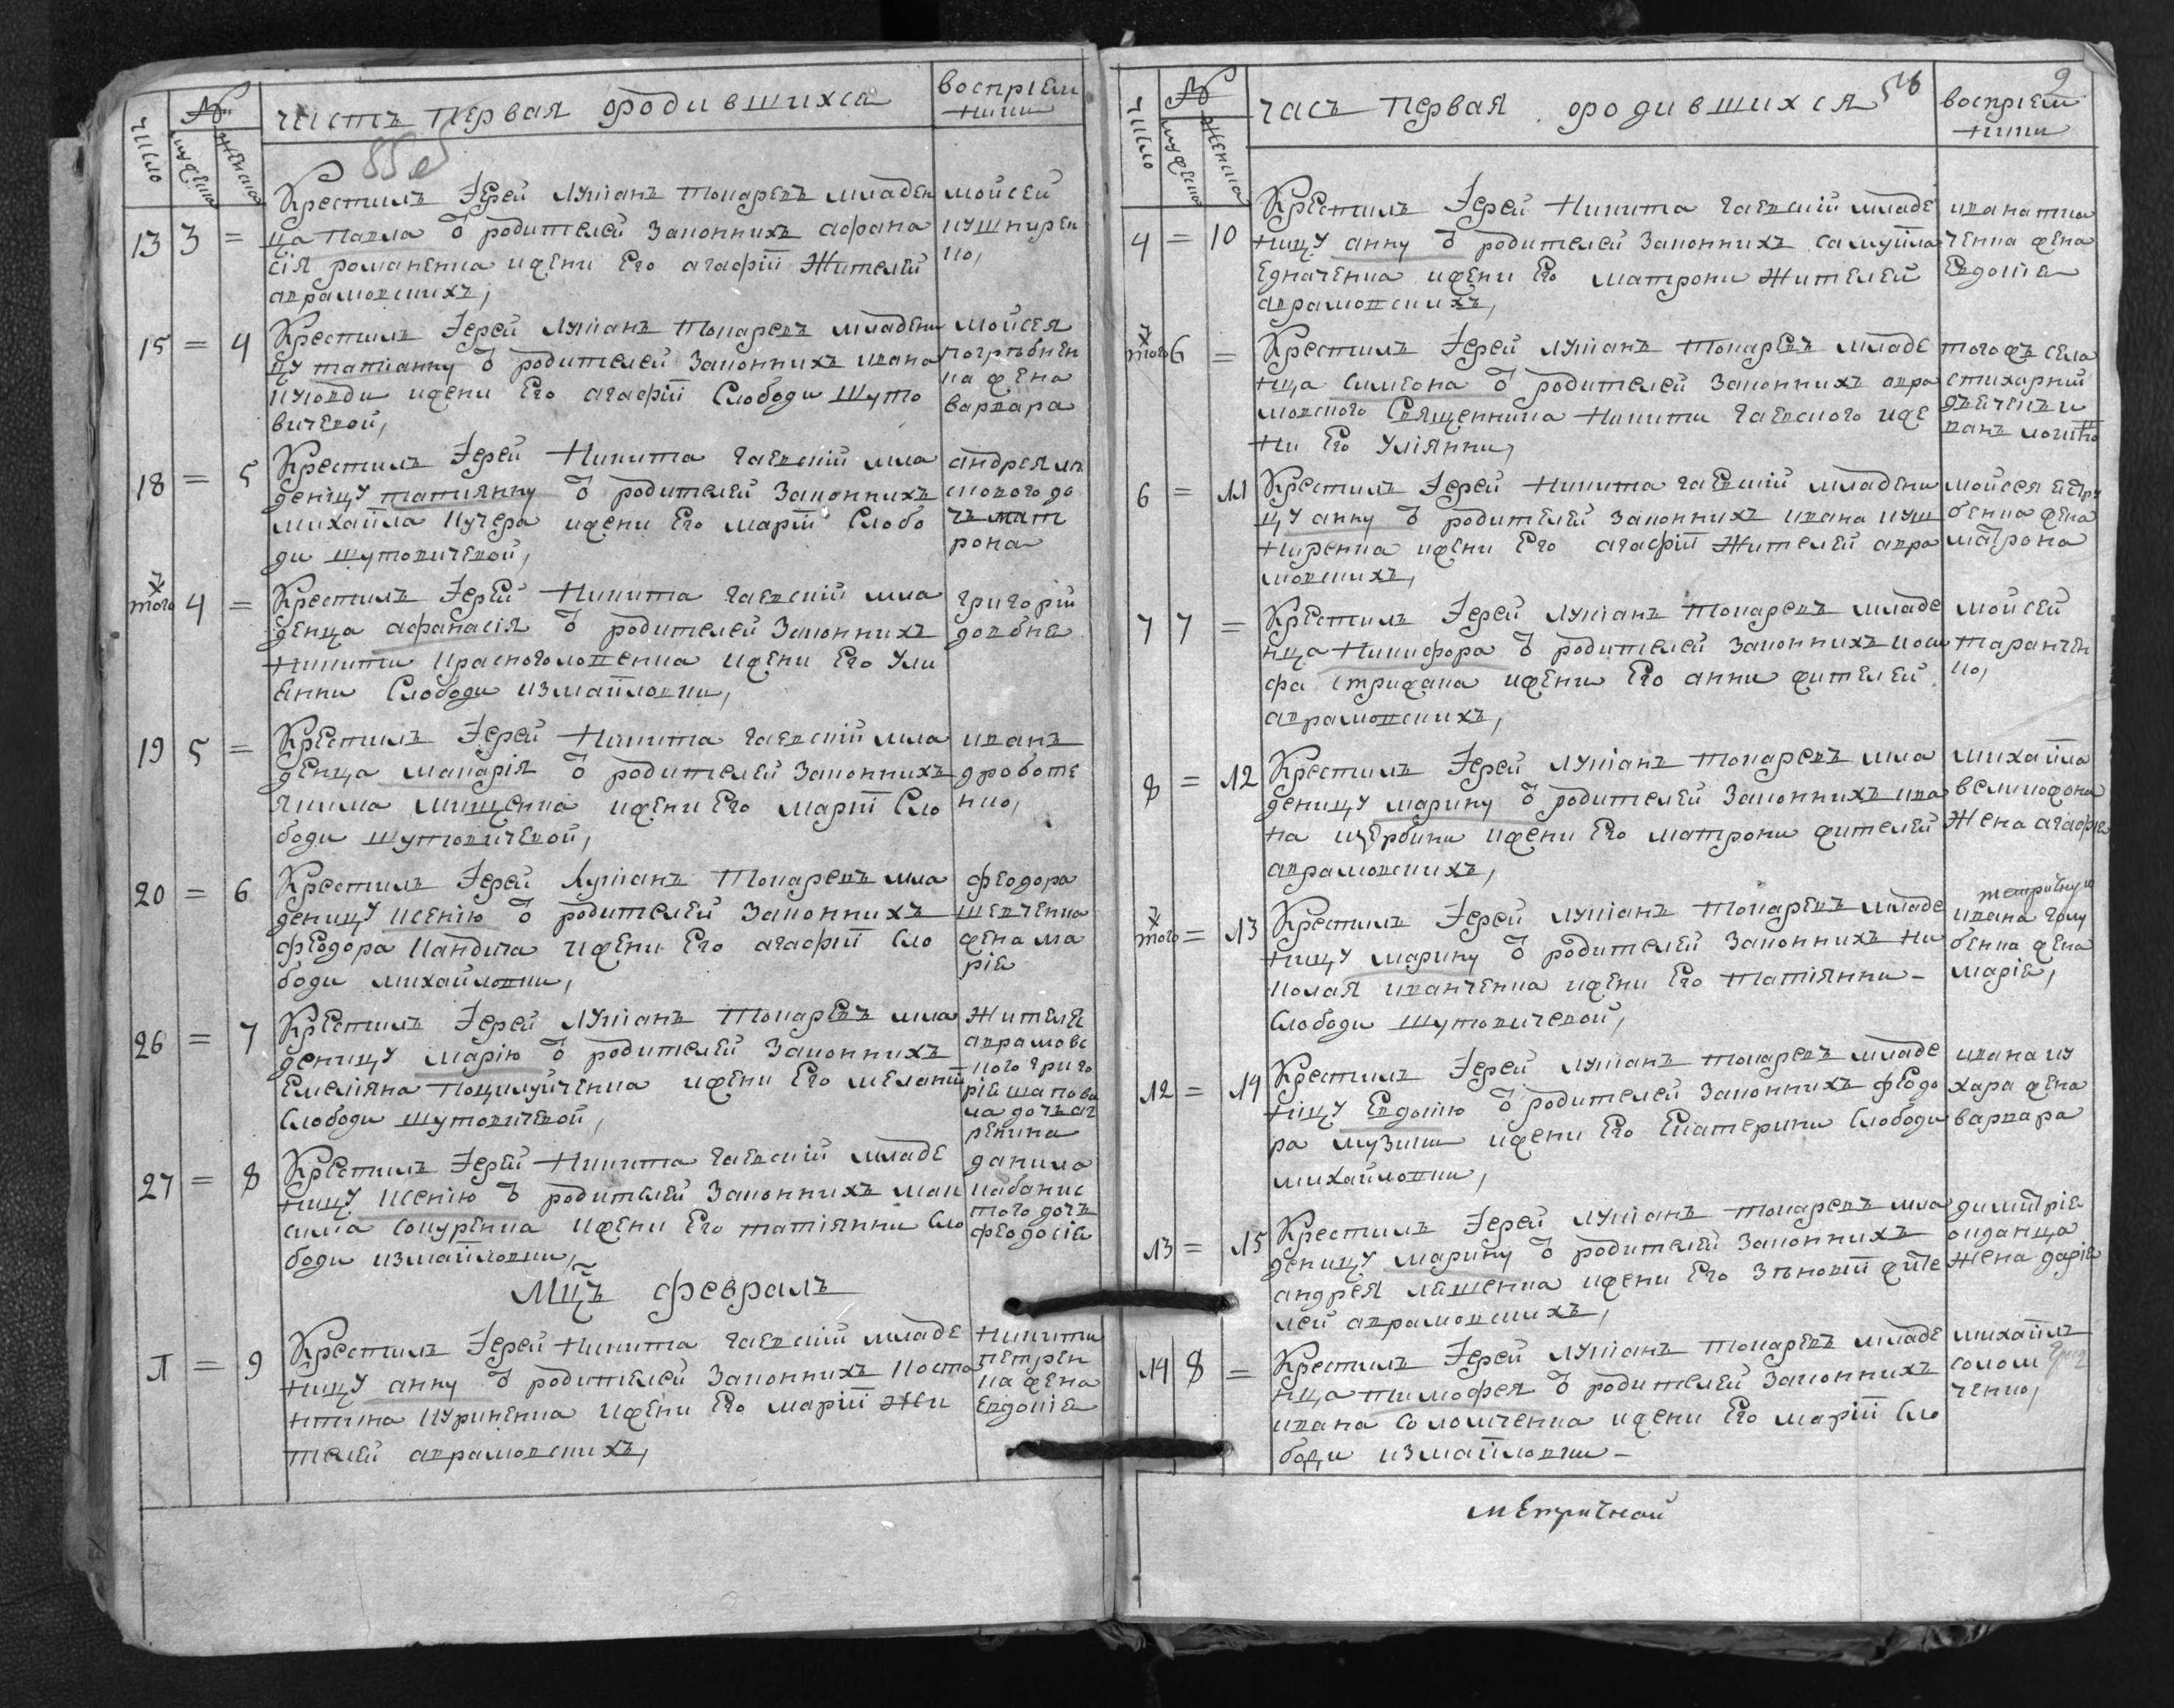 число
№
мужеска
женска
часть первая ѡродившихся
восприем
ники
13 3 =
Крестилъ Іерей Лукіанъ Токаревъ младен
ца Павла ѿ родителей законнихъ афана
сія романенка ижени Его агафіи Жителей
аврамовскихъ,
мойсей
кушнирен
ко,
15 = 4
Крестилъ Іерей Лукіанъ Токаревъ младени
цу татіанну ѿ родителей законнихъ ивана
ижени Его агафіи Слободи Шуто
вичевой,
мойсея
погрѣбнен
ка жена
варвара
18 = 5
Крестилъ Іерей Никита Гаевскій мла
деницу татіянну ѿ родителей законнихъ
михайла Кучера ижени Его маріи Слобо
ди шутовичевой,
андрея
до
чъ мат
рона
того ж 4 =
Крестилъ Іерей Никита Гаевскій мла
денца афанасія ѿ родителей законнихъ
никити Красноголовенка ижени Его Ули
янни Слободи измайловки,
григорій
довбня
19 5 =
Крестилъ Іерей Никита Гаевскій мла
денца макарія ѿ родителей законнихъ
якима мищенка ижени Его маріи Сло
боди шутовичевой,
иванъ
дроботе
нко,
20 = 6
Крестилъ Іерей Лукіанъ Токаревъ мла
деницу ксенію ѿ родителей законнихъ
феодора Кандиса ижени Его агафіи Сло
боди михайловки,
феодора
шевченка
жена ма
рія
26 = 7
Крестилъ Іерей Лукіанъ Токаревъ мла
деницу марію ѿ родителей законнихъ
Емеліяна поцилуйченка ижени Его меланіи
Слободи шутовичевой,
Жителя
аврамовс
кого григо
рія шапова
ла дочъ аг
репина
27 = 8
Крестилъ Іерей Никита Гаевскій младе
ницу ксенію ѿ родителей законнихъ мак
сима сокуренка ижени Его татіянни Сло
боди измайловки,
данила
кабанис
того дочъ
феодосія
Мцъ февраль
1 = 9
Крестилъ Іерей Никита Гаевскій младе
ницу анну ѿ родителей законнихъ коста
нтина Куриненка ижени Его маріи Жи
телей аврамовскихъ,
никити
петрен
ка жена
Евдокія
число
№
мужеска
женска
часъ первая ѡродившихся
восприем
ники
9
4 = 10
Крестилъ Іерей Никита Гаевскій младе
ницу анну ѿ родителей законнихъ самуйла
Едначенка ижени Его матрони Жителей
аврамовскихъ,
ченка жена
Евдокія
того ж 6 =
Крестилъ Іерей Лукіанъ Токаревъ младе
нца симеона ѿ родителей законнихъ авра
мовского Священника Никити Гаевского иже
ни Его Уліянни,
тогожъ села
стихарний
дяченъ и
ванъ
6 = 11
Крестилъ Іерей Никита Гаевскій младени
цу анну ѿ родителей законнихъ ивана куш
ниренка ижени Его агафіи Жителей авра
мовскихъ,
мойсея
бенка жена
матрона
7 7 =
Крестилъ Іерей Лукіанъ Токаревъ младе
нца Никифора ѿ родителей законнихъ иоси
фа стрижака ижени Его анни жителей
аврамовскихъ,
мойсей
таранчен
ко,
8 = 12
Крестилъ Іерей Лукіанъ Токаревъ мла
деницу марину ѿ родителей законнихъ ива
на щербини ижени Его матрони жителей
аврамовскихъ,
михайла
великожона
Жена агафія
того ж = 13
Крестилъ Іерей Лукіанъ Токаревъ младе
ницу марину ѿ родителей законнихъ ни
колая иванченка ижени Его татіянни -
Слободи шутовичевой,
ивана голу
бенка жена
марія,
12 = 14
Крестилъ Іерей Лукіанъ Токаревъ младе
ницу Евдокію ѿ родителей законнихъ феодо
ра музики ижени Его Екатерини Слободи
михайловки,
ивана ку
хара жена
варвара
13 = 15
Крестилъ Іерей Лукіанъ Токаревъ мла
деницу марину ѿ родителей законнихъ
андрея ляшенка ижени Его зѣновіи жите
лей аврамовскихъ,
димитрія
ожданца
жена дарія
14 8 =
Крестилъ Іерей Лукіанъ Токаревъ младе
нца тимофея ѿ родителей законнихъ
ивана соломченка ижени Его маріи Сло
боди измайловки -
михайлъ
солом
ченко,
метричной